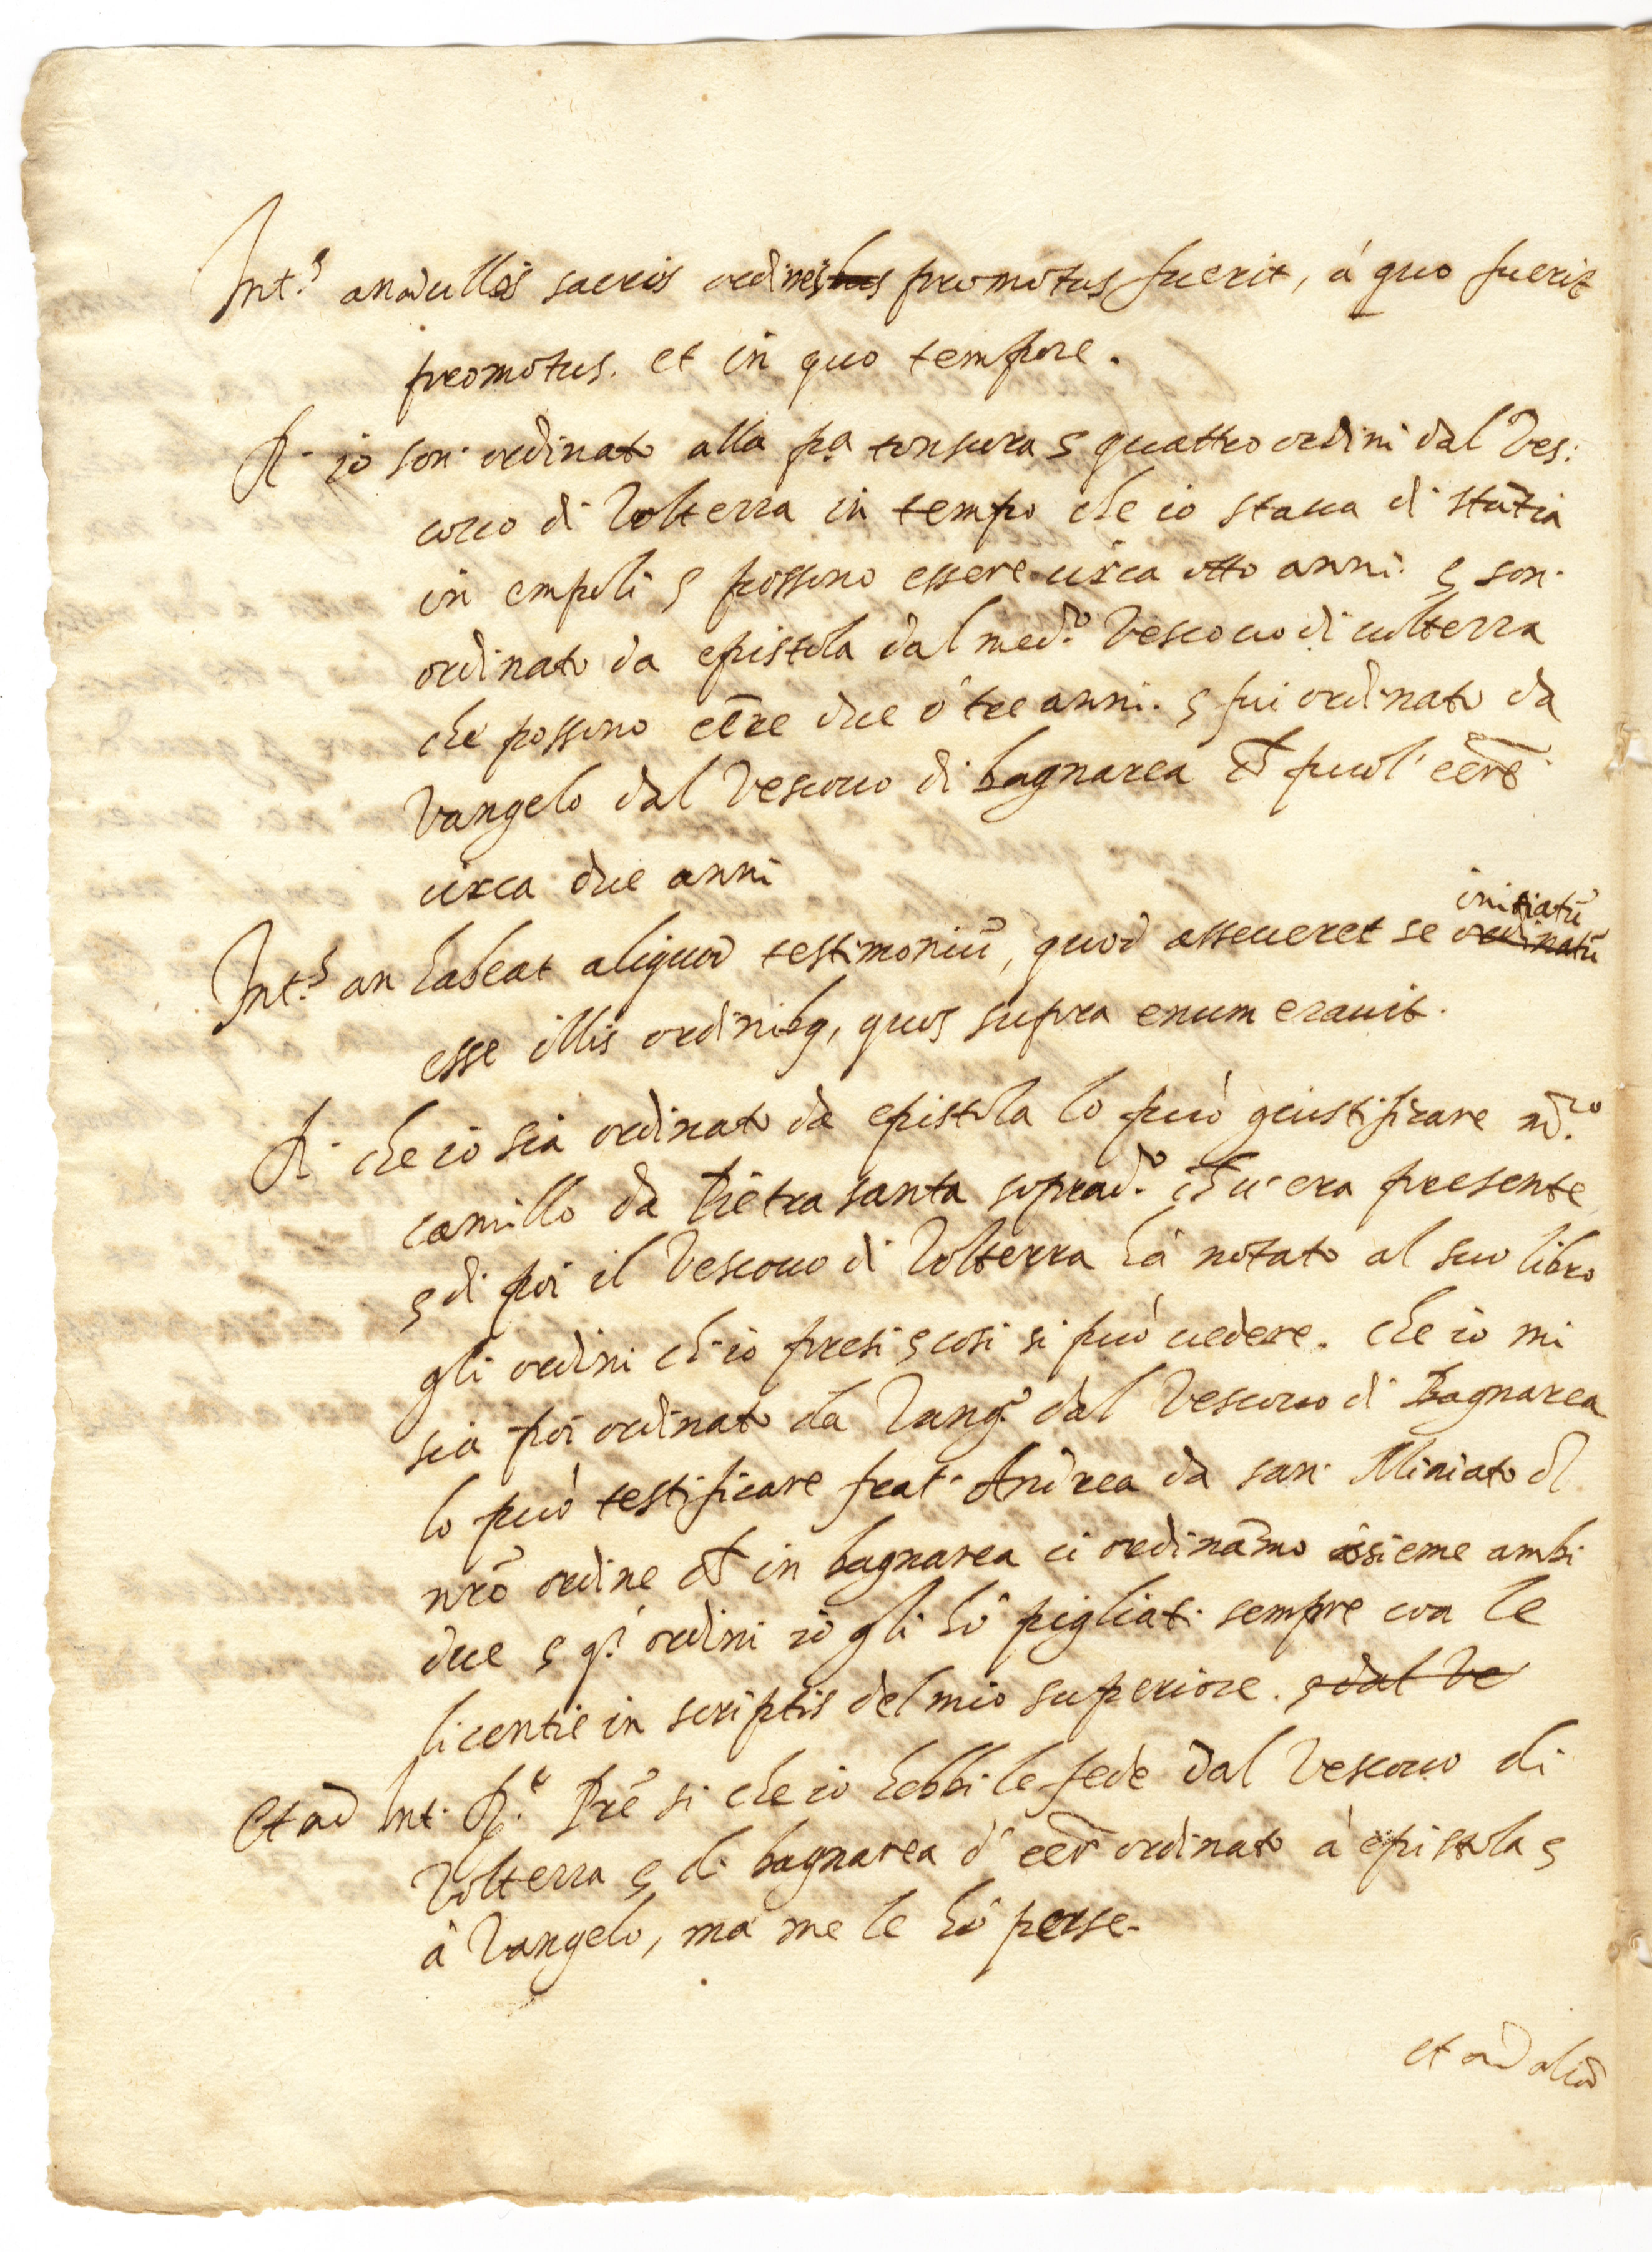 Int.s an ad ullos sacros ordines promotus fuerit, à quo fuerit
promotus. et in quo tempore.
R. io son. ordinato alla p.a tonsura e quattro ordini dal Ves:
couo di Volterra in tempo che io staua di stãzia
in empoli e possono essere circa otto anni. e son.
ordinato da epistola dal med.o Vescouo di uolterra
che possono eẽre due ò tre anni. e fui ordinato da
Vangelo dal Vescouo di bagnarea ch̃ puol' eẽre
circa due anni
Int.s an habeat aliquod testimoniũ, quod asseueret se ordinatũ initiatũ
esse illis ordinibq, quos supra enumerauit.
R. che io sia ordinato da epistola lo può giustificare m.ro
camillo da Pietra santa soprad.o ch̃ u'era presente
e di poi il Vescouo di Volterra hà notato al suo libro
gli ordini ch'io presi e cosi si può uedere. che io mi
sia poi ordinato da Vang.o dal Vescouo di Bagnarea
lo può testificare frat. Andrea da san. Miniato dl
nrõ ordine ch̃ in bagnarea ci ordinãmo assieme ambi
due e q.i ordini io gli hò pigliati sempre con le
licentie in scriptis del mio superiore. e dal Ve
Et ad Int. R.t Prẽ si che io hebbi le fede dal Vescouo di
Volterra e di bagnarea d' eẽr ordinato à epistola e
à Vangelo, ma me le hò perse.
et ad aliã